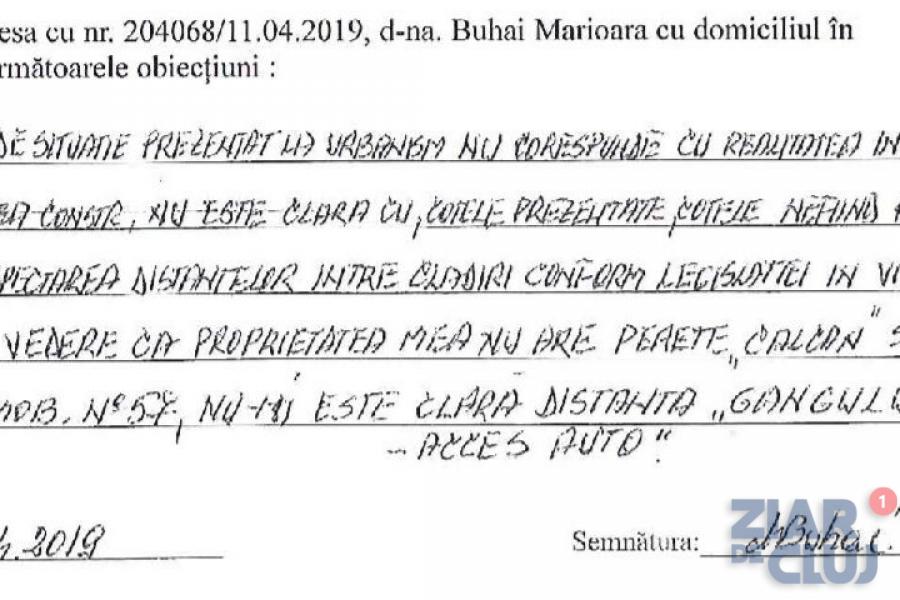 esa cu nr. 204068/11.04.2019, d-na. Buhai Marioara cu domiciliul în
rmătoarele obiecțiuni :
DE SITUATIE PREZENTAT LA URBANISM NU CORESPUNDE CU REALITATEA IN
CONSTR, NU ESTE CLARA CU, COTELE PREZENTATE, COTELE NEFIIND
PECTAREA DISTANTELOR INTRE CLADIRI CONFORM LEGISLATIEI IN VI
VEDERE CA PROPRIETATEA MEA NU ARE PERETE „CALCAN" S
MOB. Nº 57, NU-MI ESTE CLARA DISTANTA „GANGULU
- ACCES AUTO".
.2019
Semnătura: Buhai.
ZIAR
DE CLUJ
1